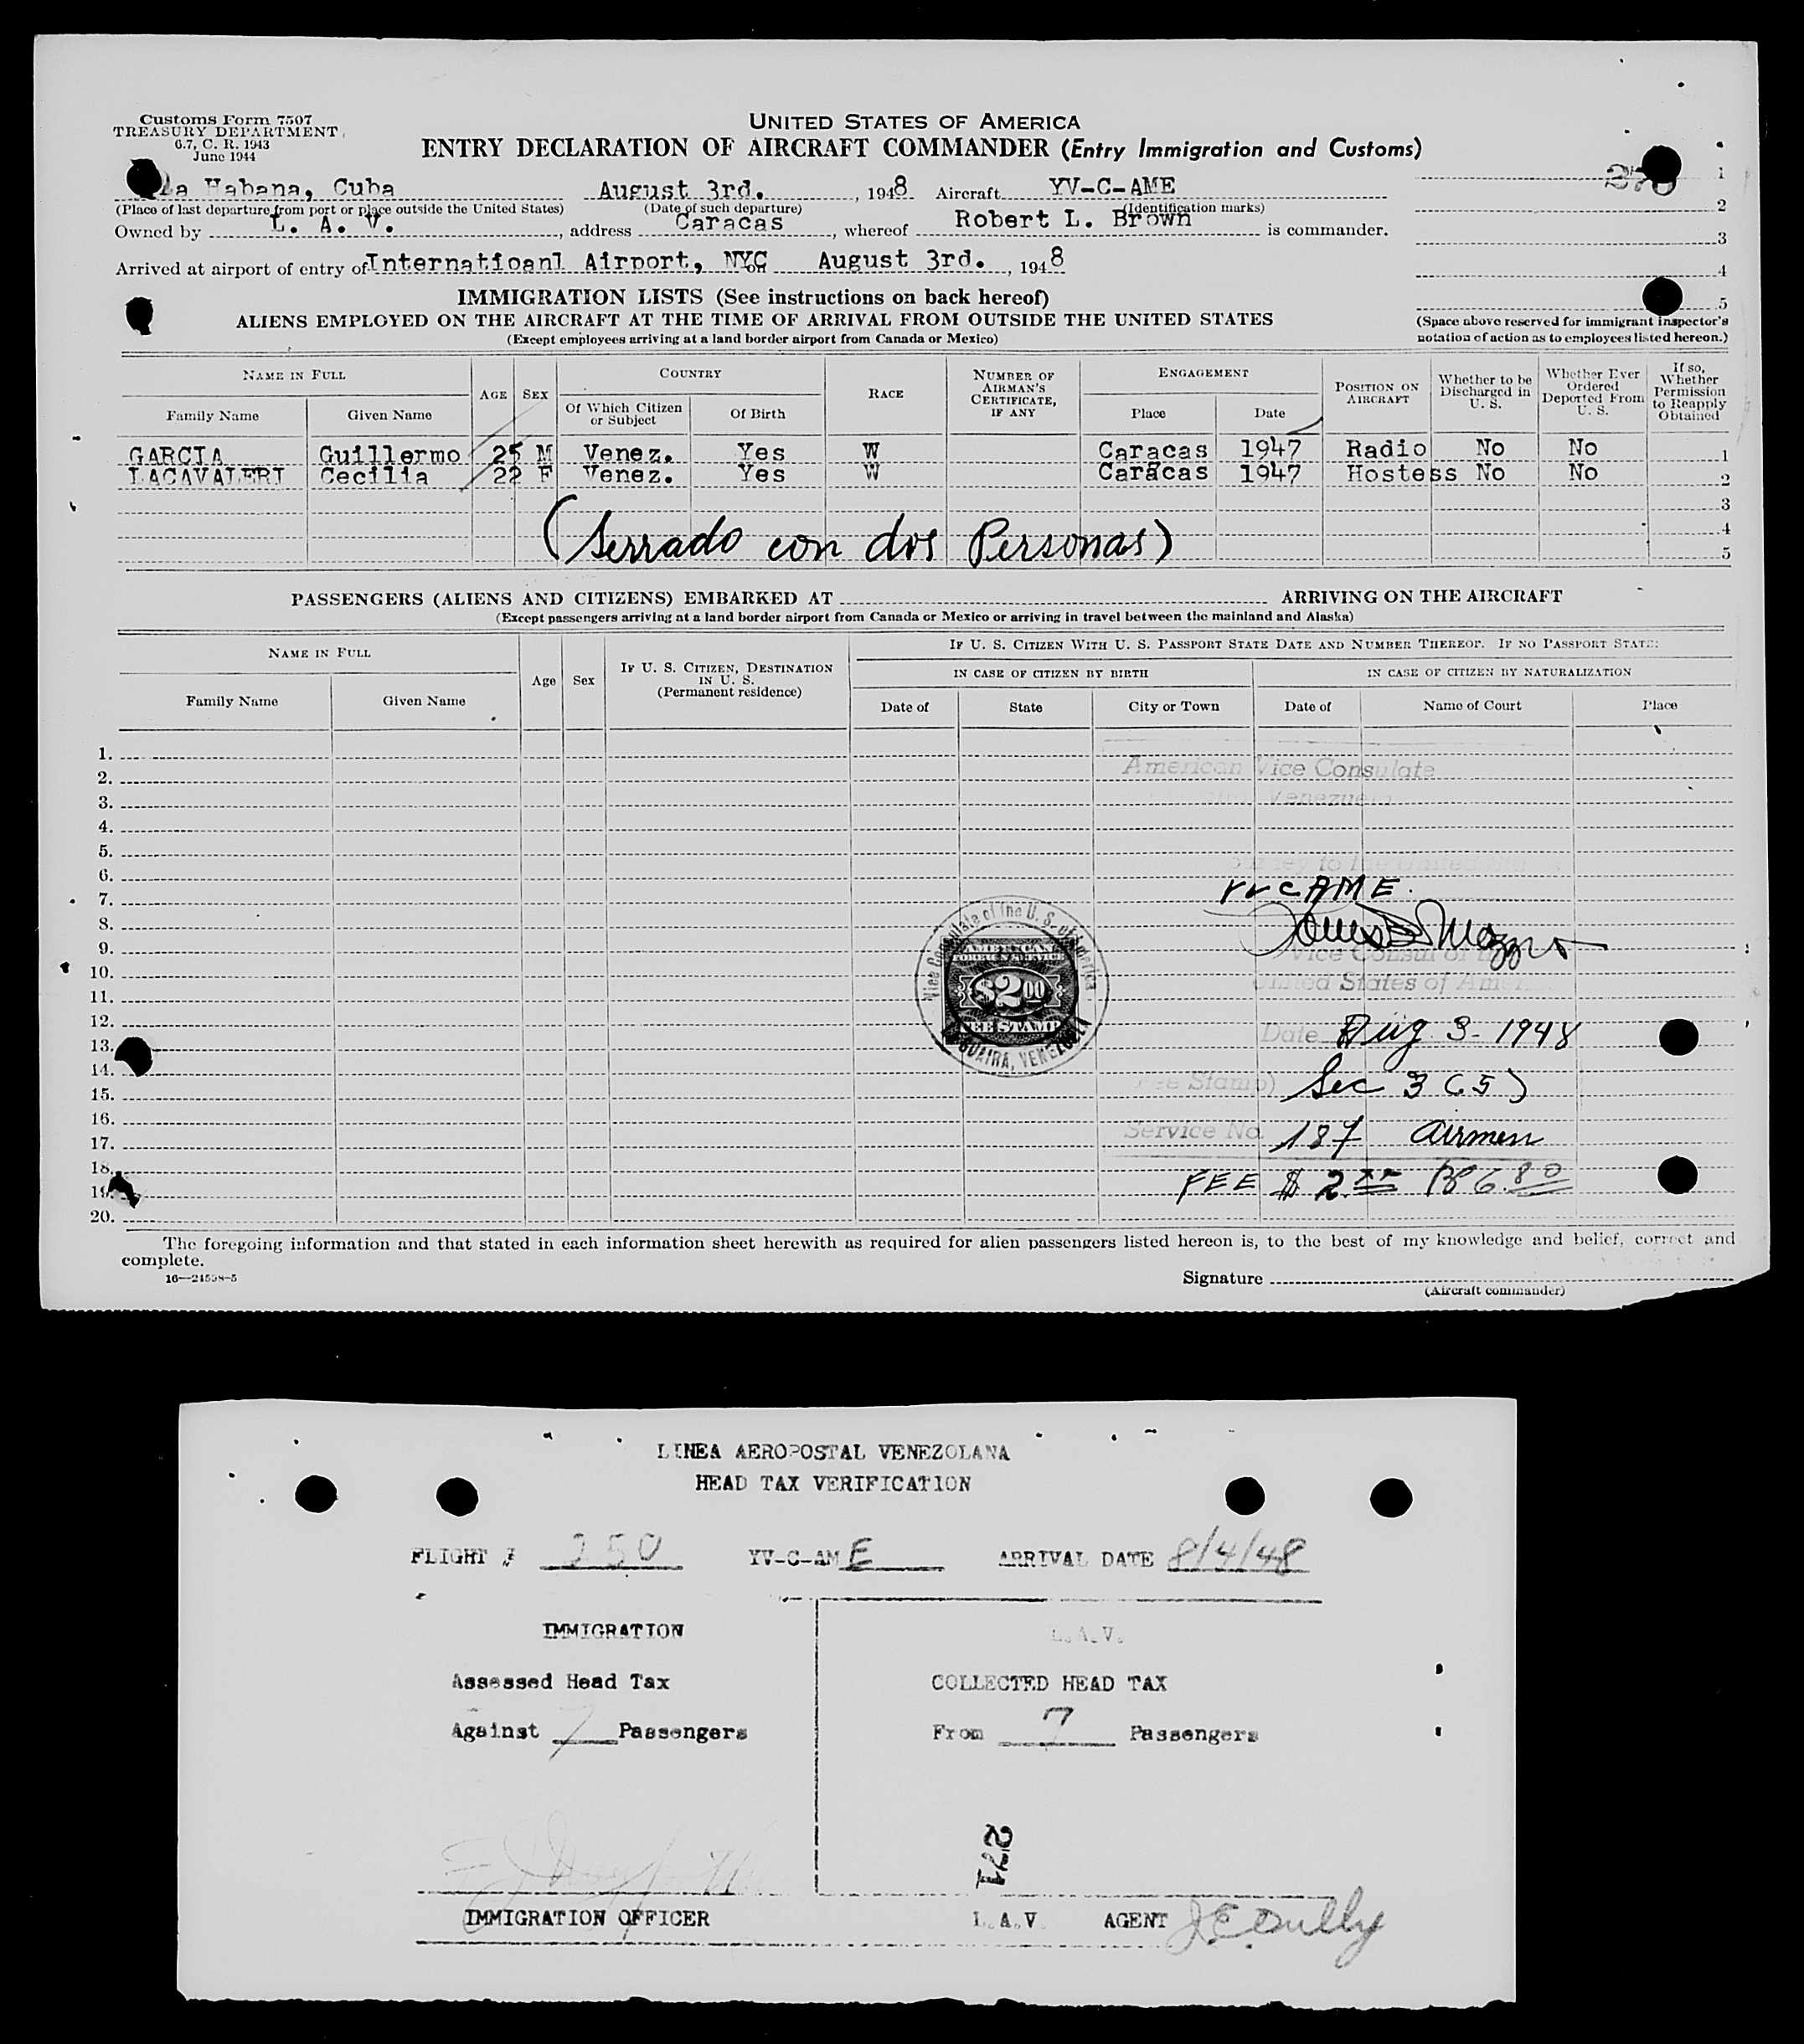 Customs Form 7507
TREASURY DEPARTMENT
6.7, C. R. 1943
June 1944
UNITED STATES OF AMERICA
ENTRY DECLARATION OF AIRCRAFT COMMANDER (Entry Immigration and Customs)
La Habana, Cuba August 3rd. , 1948 Aircraft YV-C-AME
(Place of last departure from port or place outside the United States) (Date of such departure) (Identification marks)
Owned by L. A. V. , address Caracas , whereof Robert L. Brown is commander.
Arrived at airport of entry of Internatioanl Airport, NYC on August 3rd. , 1948
1
2
3
4
5
(Space above reserved for immigrant inspector's
notation of action as to employees listed hereon.)
IMMIGRATION LISTS (See instructions on back hereof)
ALIENS EMPLOYED ON THE AIRCRAFT AT THE TIME OF ARRIVAL FROM OUTSIDE THE UNITED STATES
(Except employees arriving at a land border airport from Canada or Mexico)
NAME IN FULL AGE SEX COUNTRY RACE NUMBER OF AIRMAN'S CERTIFICATE, IF ANY ENGAGEMENT POSITION ON AIRCRAFT Whether to be Discharged in U. S. Whether Ever Ordered Deported From U. S. If so, Whether Permission to Reapply Obtained
Family Name Given Name Of Which Citizen or Subject Of Birth Place Date
GARCIA Guillermo 25 M Venez. Yes W Caracas 1947 Radio No No 1
LACAVALERI Cecilia 22 F Venez. Yes W Caracas 1947 Hostess No No 2
3
4
(Serrado con dos Personas)
5
PASSENGERS (ALIENS AND CITIZENS) EMBARKED AT ARRIVING ON THE AIRCRAFT
(Except passengers arriving at a land border airport from Canada or Mexico or arriving in travel between the mainland and Alaska)
NAME IN FULL Age Sex IF U. S. CITIZEN, DESTINATION IN U. S. (Permanent residence) IF U. S. CITIZEN WITH U. S. PASSPORT STATE DATE AND NUMBER THEREOF. IF NO PASSPORT STATE:
IN CASE OF CITIZEN BY BIRTH IN CASE OF CITIZEN BY NATURALIZATION
Family Name Given Name Date of State City or Town Date of Name of Court Place
1.
2. American Vice Consulate
3. Venezuela
4.
5.
6.
7. YV CAME.
8.
9. Vice Consul of the
10.
11. United States of America
12.
13. Date Aug 3 - 1948
14.
15. (Fee Stamp) Sec 3 (5)
16.
17. Service No. 187 Airmen
18.
19. FEE $ 2.00 Bs 6.80
20.
Vice Consulate of the U. S. of America
AMERICAN
FOREIGN SERVICE
$2.00
FEE STAMP
LA GUAIRA, VENEZUELA
The foregoing information and that stated in each information sheet herewith as required for alien passengers listed hereon is, to the best of my knowledge and belief, correct and
complete.
16—24598-5
Signature
(Aircraft commander)
LINEA AEROPOSTAL VENEZOLANA
HEAD TAX VERIFICATION
FLIGHT # 250 YV-C-AME ARRIVAL DATE 8/4/48
IMMIGRATION L.A.V.
Assessed Head Tax COLLECTED HEAD TAX
Against 7 Passengers From 7 Passengers
271
IMMIGRATION OFFICER L.A.V. AGENT